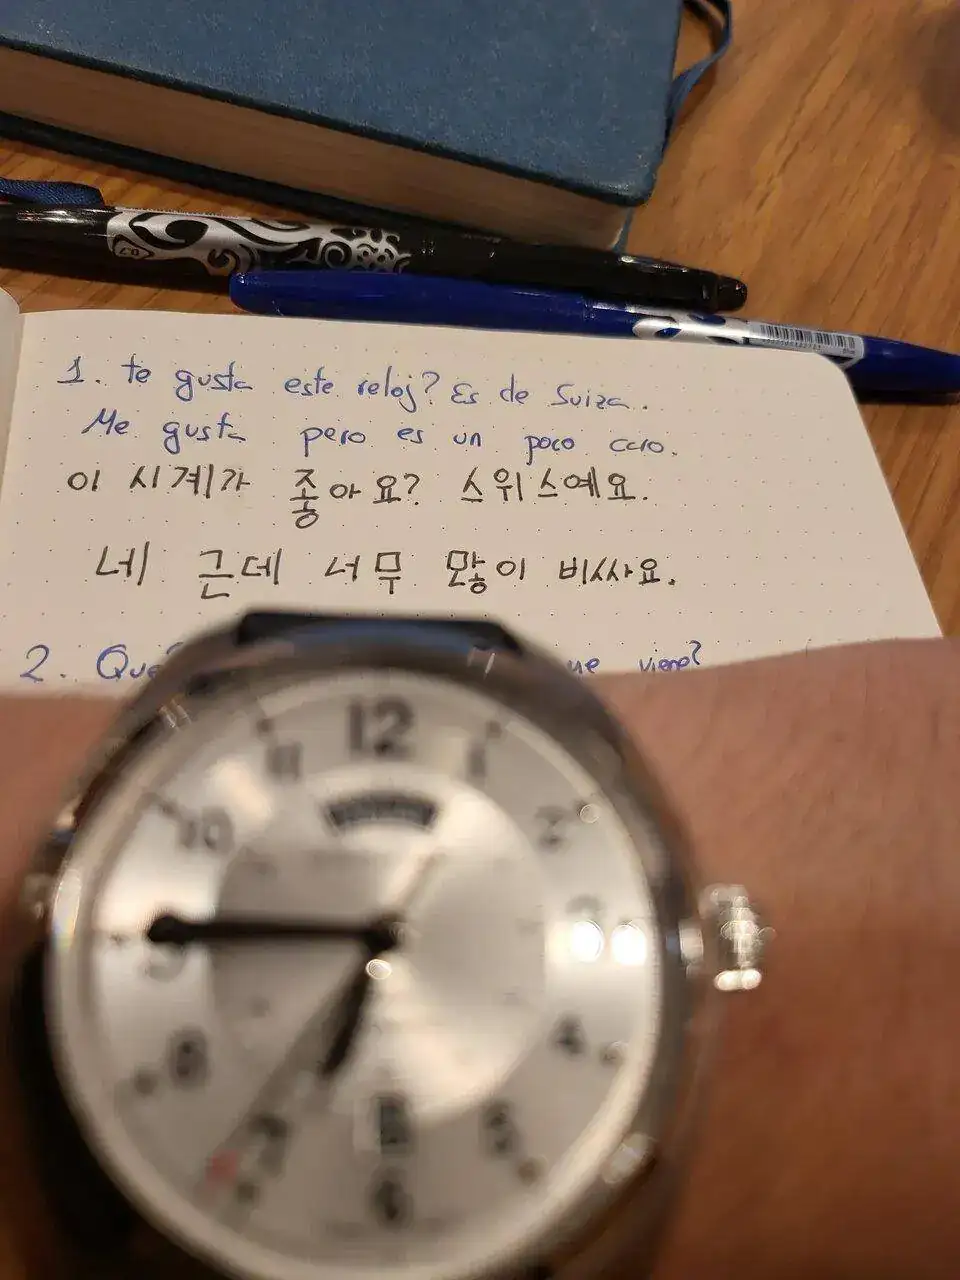 1. te gusta este reloj? Es de Suiza.
Me gusta pero es un poco caro.
이 시계가 좋아요? 스위스예요.
네 근데 너무 많이 비싸요.
2. Que viene?
12
11
1
10
2
3
9
8
4
7
5
6